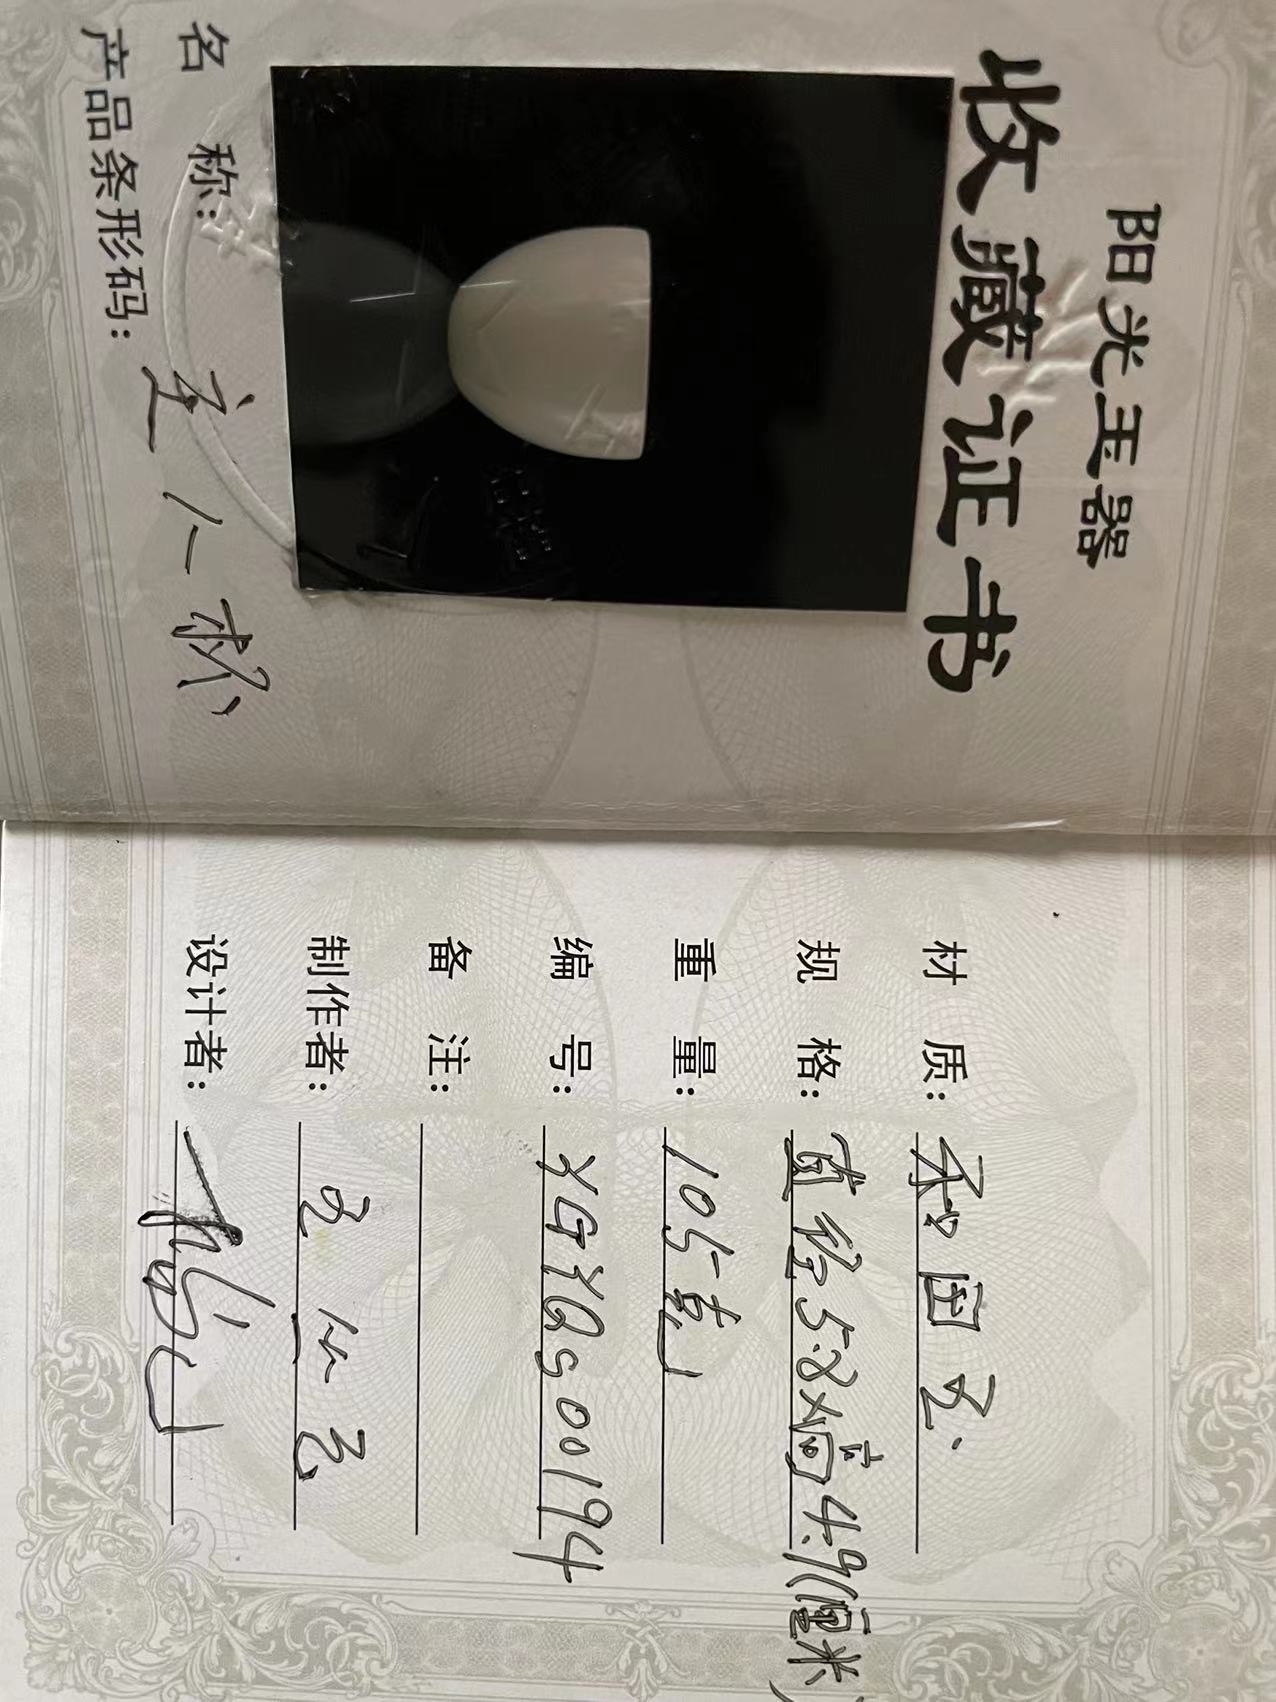 阳光玉器
收藏证书
名 称: 主人杯
产品条形码:
材 质: 和田玉.
规 格: 直径5.8×高4.9(厘米)
重 量: 105克
编 号: YGYQS00194
备 注:
制作者:
设计者: